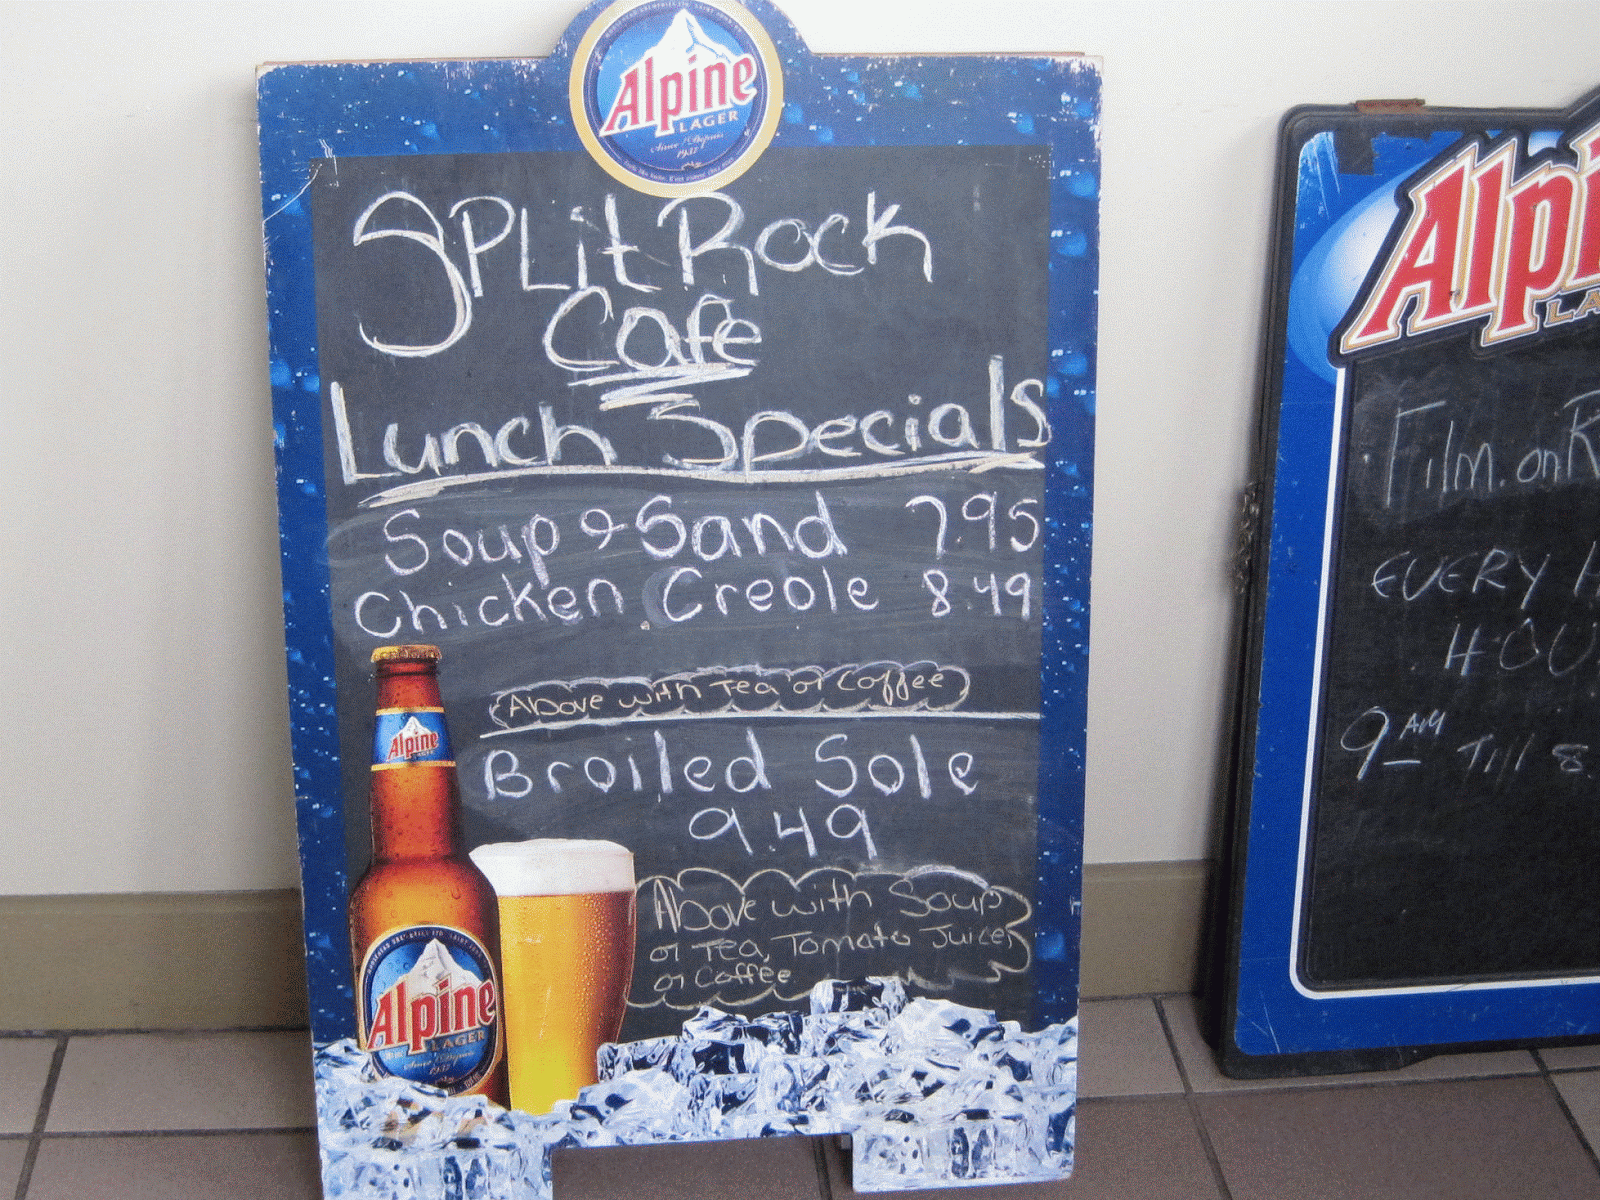 Alpine
LAGER
Since / Depuis
1937
Split Rock
Cafe
Lunch Specials
Soup & Sand 7.95
Chicken Creole 8.49
Above with Tea or Coffee
Broiled Sole
9.49
Above with Soup
or Tea, Tomato Juice,
or Coffee
Alpine
LAGER
Alpine
LAGER
Since / Depuis
1937
Alpi
LA
Film. on R
EVERY H
HOU
9 AM Till 8